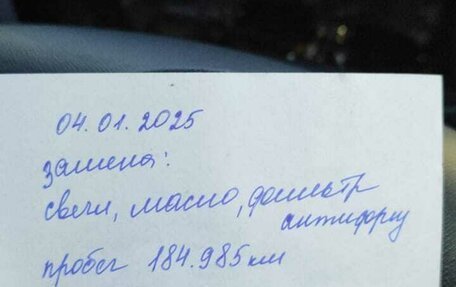 04.01.2025
замена:
свечи, масло, фильтр
антифриз
пробег 184.985 км